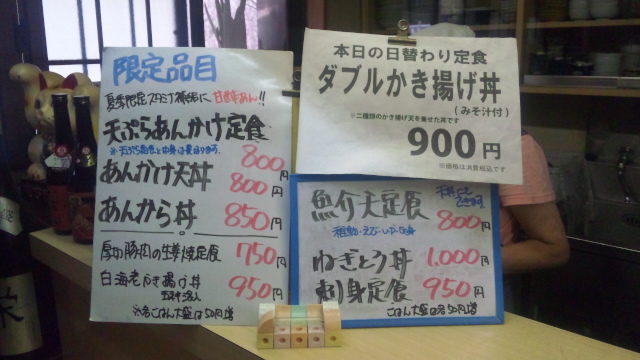 限定品目
夏季限定スタミナ補給に 甘酢あん!!
天ぷらあんかけ定食
800円
あんかけ天丼 800円
あんから丼 850円
厚切豚肉の生姜焼定食 750円
白海老かき揚げ丼 950円
※各ごはん大盛は50円増
本日の日替わり定食
ダブルかき揚げ丼
(みそ汁付)
※二種類のかき揚げ天を乗せた丼です
900円
※価格は消費税込です
魚介天定食 800円
天丼にもできます
ねぎとろ丼 1,000円
刺身定食 950円
ごはん大盛は各50円増